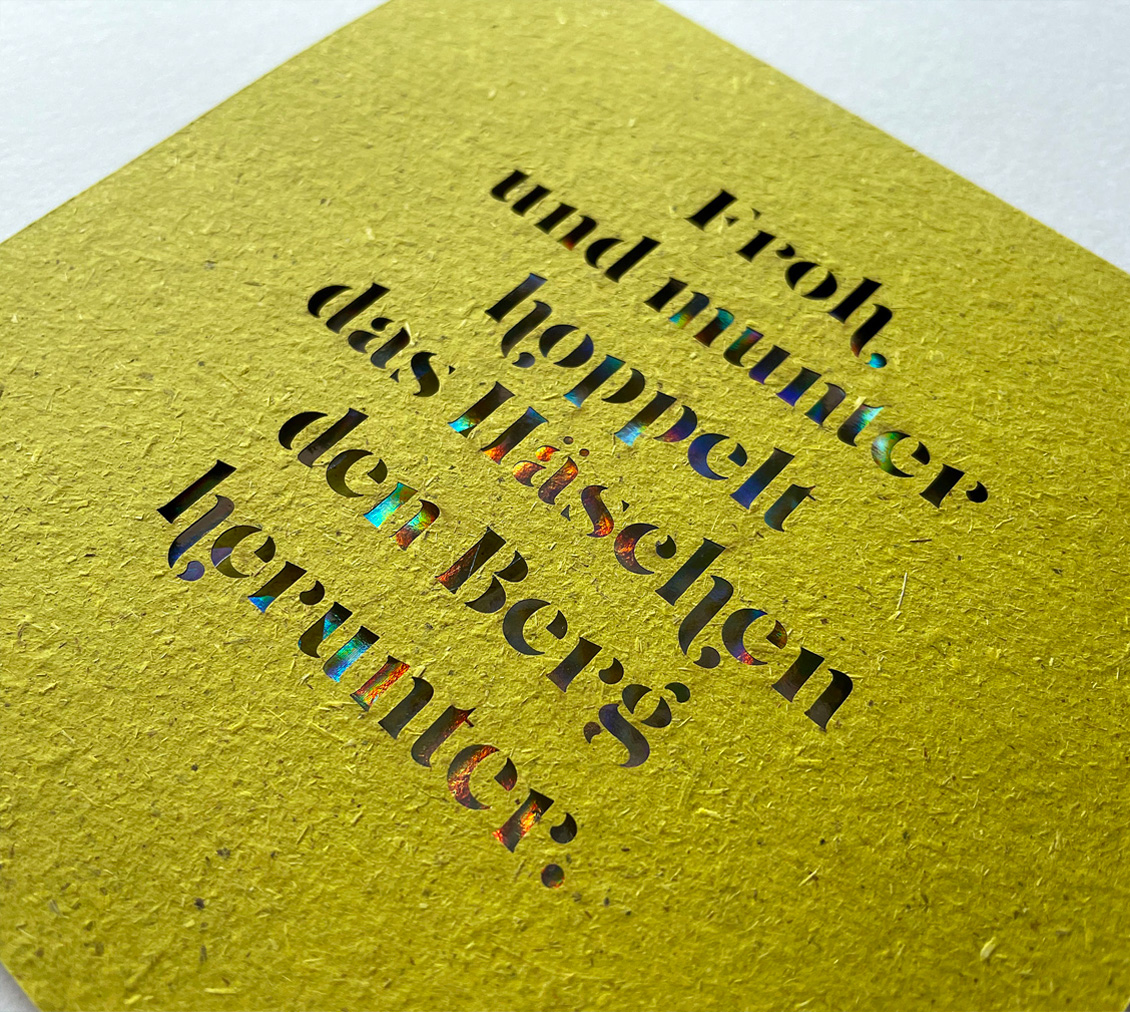 Froh,
und munter
hoppelt
das Häschen
den Berg
herunter.